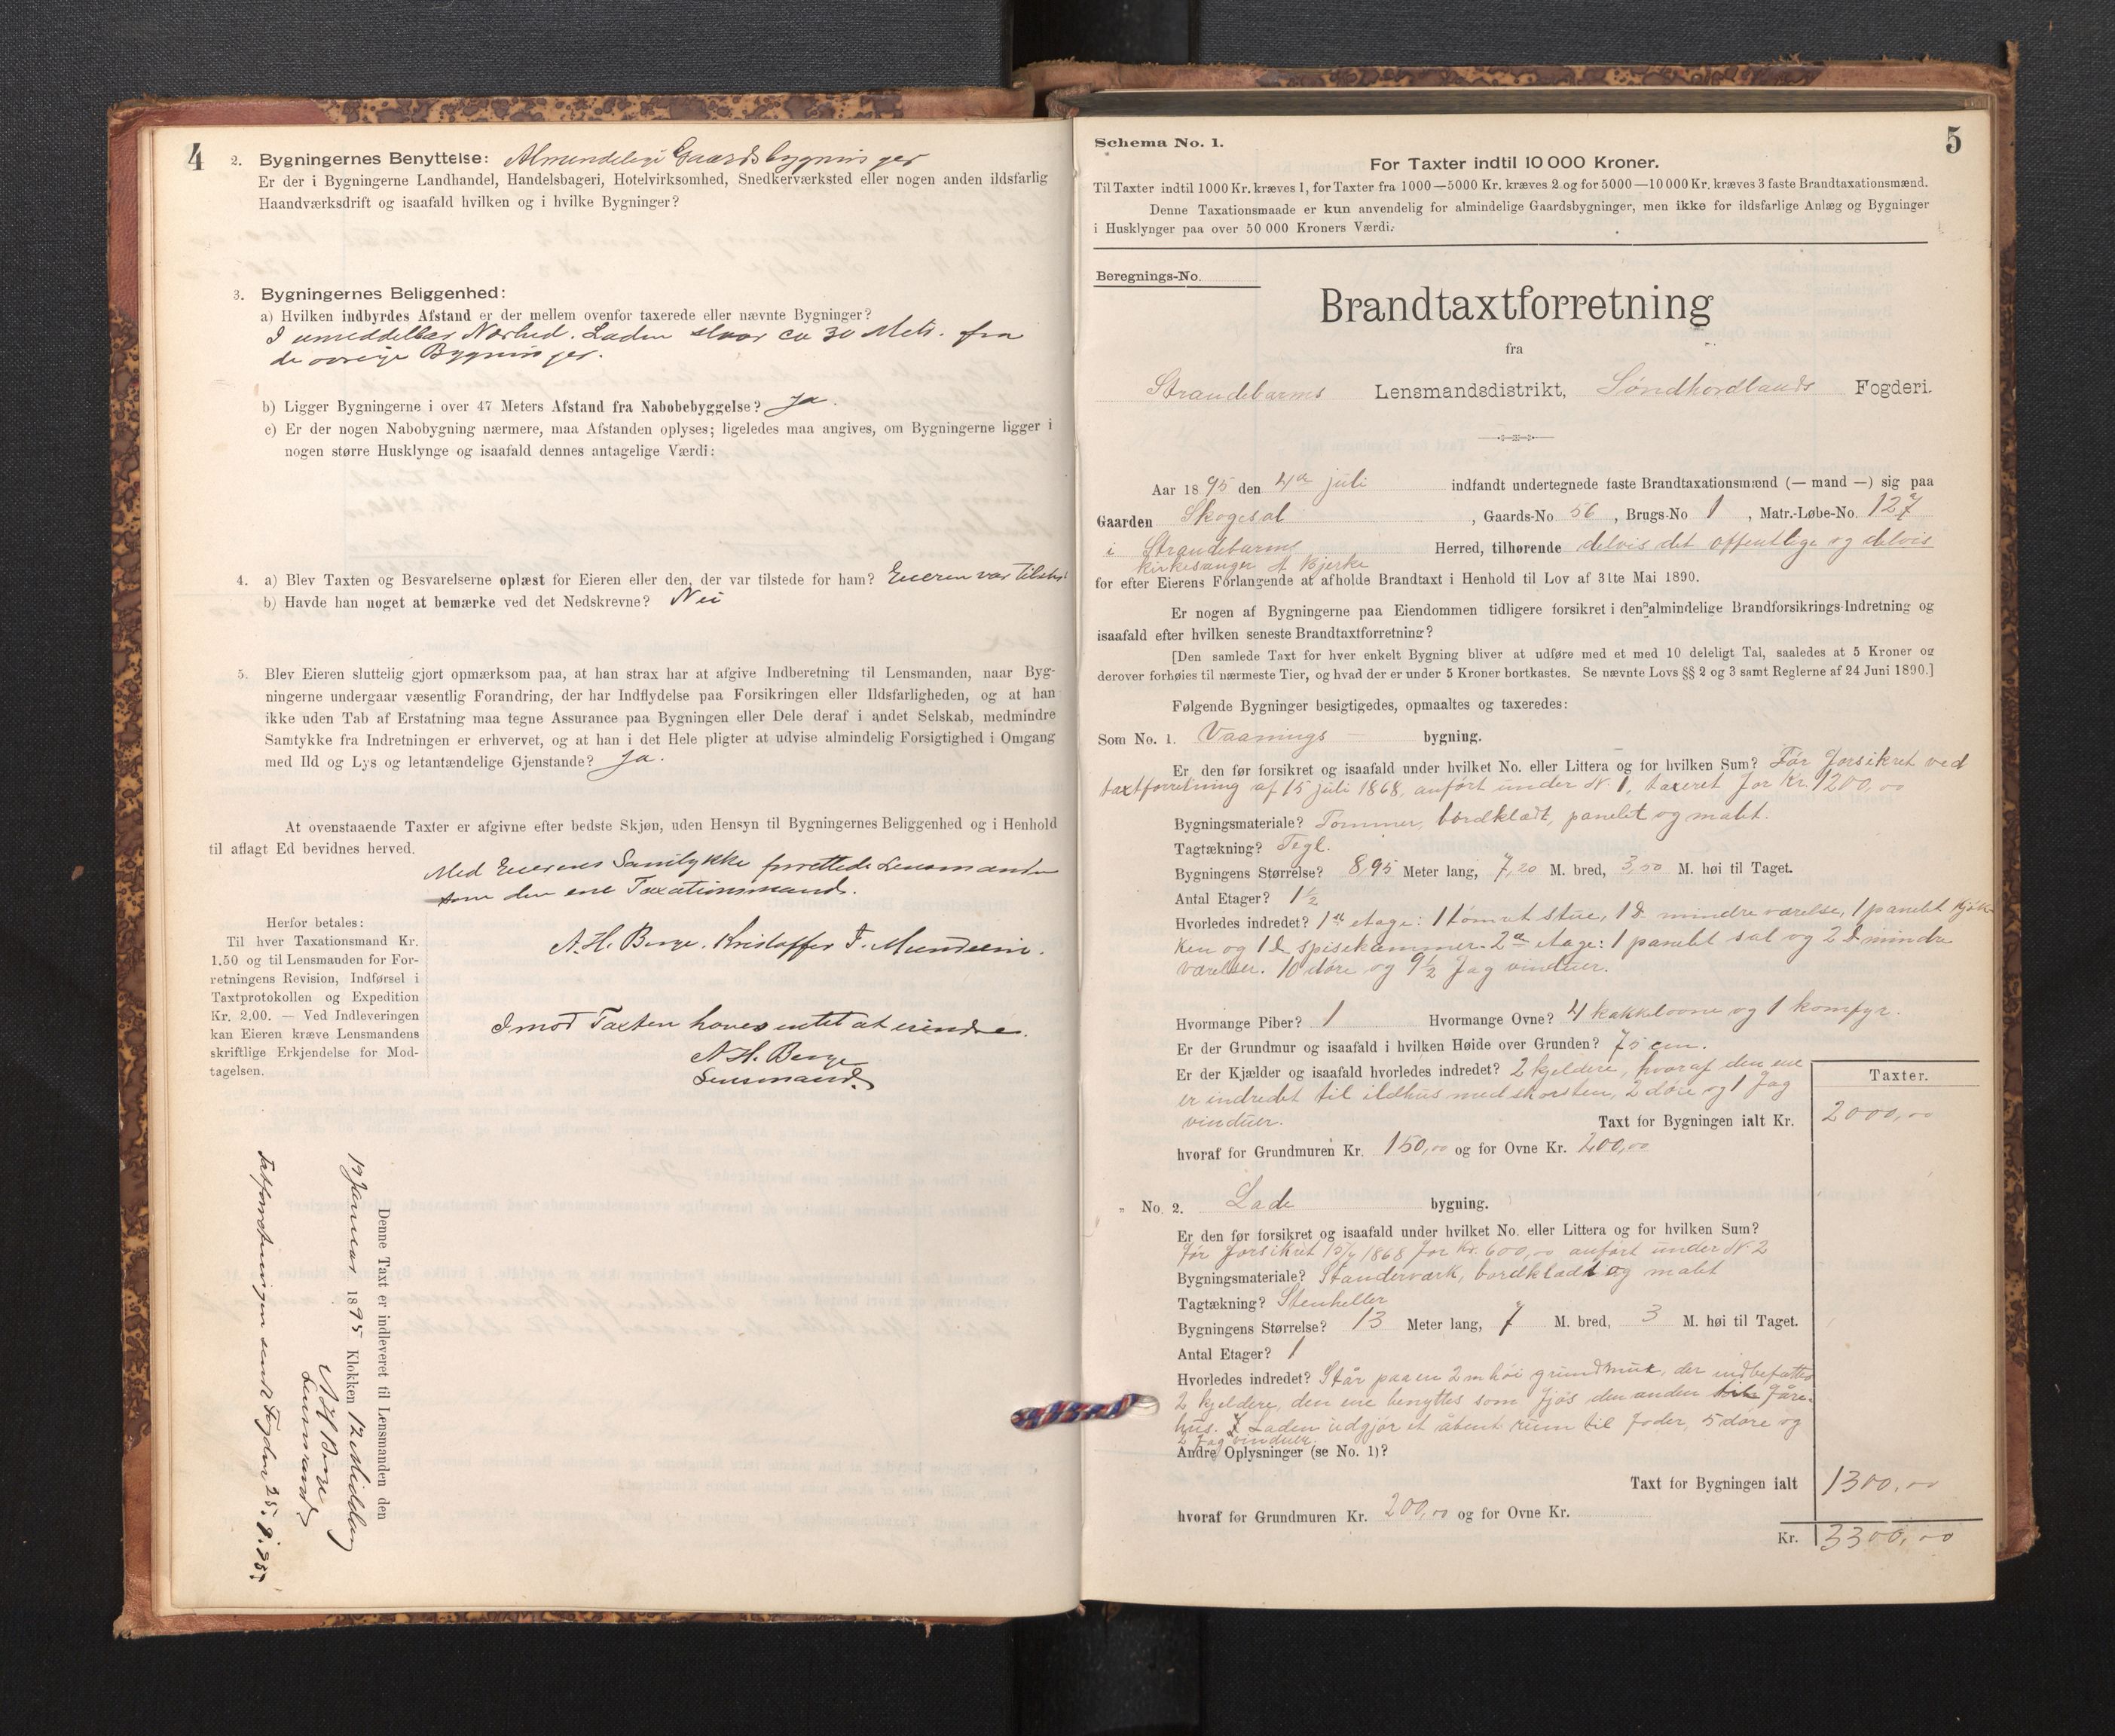 4
2. Bygningernes Benyttelse: Almindelige Gaardsbygninger
Er der i Bygningerne Landhandel, Handelsbageri, Hotelvirksomhed, Snedkerværksted eller nogen anden ildsfarlig
Haandværksdrift og isaafald hvilken og i hvilke Bygninger?
3. Bygningernes Beliggenhed:
a) Hvilken indbyrdes Afstand er der mellem ovenfor taxerede eller nævnte Bygninger?
I umiddelbar Nærhed. Laden staar ca 30 Met. fra
de øvrige Bygninger.
b) Ligger Bygningerne i over 47 Meters Afstand fra Nabobebyggelse? Ja.
c) Er der nogen Nabobygning nærmere, maa Afstanden oplyses; ligeledes maa angives, om Bygningerne ligger i
nogen større Husklynge og isaafald dennes antagelige Værdi:
4. a) Blev Taxten og Besvarelserne oplæst for Eieren eller den, der var tilstede for ham? Eieren var tilsted
b) Havde han noget at bemærke ved det Nedskrevne? Nei
5. Blev Eieren sluttelig gjort opmærksom paa, at han strax har at afgive Indberetning til Lensmanden, naar Byg-
ningerne undergaar væsentlig Forandring, der har Indflydelse paa Forsikringen eller Ildsfarligheden, og at han
ikke uden Tab af Erstatning maa tegne Assurance paa Bygningen eller Dele deraf i andet Selskab, medmindre
Samtykke fra Indretningen er erhvervet, og at han i det Hele pligter at udvise almindelig Forsigtighed i Omgang
med Ild og Lys og letantændelige Gjenstande? Ja.
At ovenstaaende Taxter er afgivne efter bedste Skjøn, uden Hensyn til Bygningernes Beliggenhed og i Henhold
til aflagt Ed bevidnes herved.
Med Eierens Samtykke forrettede Lensmanden
som den ene Taxationsmand.
A. H. Berge. Kristoffer T. Mundheim.
Herfor betales:
Til hver Taxationsmand Kr.
1.50 og til Lensmanden for For-
retningens Revision, Indførsel i
Taxtprotokollen og Expedition
Kr. 2.00. — Ved Indleveringen
kan Eieren kræve Lensmandens
skriftlige Erkjendelse for Mod-
tagelsen.
Imod Taxten haves intet at erindre.
A H. Berge
Lensmand.
Denne Taxt er indleveret til Lensmanden den
12 Januar 1895 Klokken 12 Middag
A H Berge
Lensmand
Taxtforretningen sendt Fogden 25.
5
Schema No. 1.
For Taxter indtil 10 000 Kroner.
Til Taxter indtil 1000 Kr. kræves 1, for Taxter fra 1000—5000 Kr. kræves 2 og for 5000—10 000 Kr. kræves 3 faste Brandtaxationsmænd.
Denne Taxationsmaade er kun anvendelig for almindelige Gaardsbygninger, men ikke for ildsfarlige Anlæg og Bygninger
i Husklynger paa over 50 000 Kroners Værdi.
Beregnings-No.
Brandtaxtforretning
fra
Strandebarms Lensmandsdistrikt, Søndhordlands Fogderi.
Aar 1895 den 4de juli indfandt undertegnede faste Brandtaxationsmænd (— mand —) sig paa
Gaarden Skogesal, Gaards-No 56, Brugs-No 1, Matr.-Løbe-No. 127
i Strandebarms Herred, tilhørende delvis det offentlige og delvis
kirkesanger A Bjerke
for efter Eierens Forlangende at afholde Brandtaxt i Henhold til Lov af 31te Mai 1890.
Er nogen af Bygningerne paa Eiendommen tidligere forsikret i den almindelige Brandforsikrings-Indretning og
isaafald efter hvilken seneste Brandtaxtforretning?
[Den samlede Taxt for hver enkelt Bygning bliver at udføre med et med 10 deleligt Tal, saaledes at 5 Kroner og
derover forhøies til nærmeste Tier, og hvad der er under 5 Kroner bortkastes. Se nævnte Lovs §§ 2 og 3 samt Reglerne af 24 Juni 1890.]
Følgende Bygninger besigtigedes, opmaaltes og taxeredes:
Som No. 1. Vaanings bygning.
Er den før forsikret og isaafald under hvilket No. eller Littera og for hvilken Sum? Før forsikret ved
taxtforretning af 15 juli 1868, anført under No 1, taxeret for Kr. 1200,00
Bygningsmateriale? Tømmer, bordklædt, panelet og malet.
Tagtækning? Tegl.
Bygningens Størrelse? 8,95 Meter lang, 7,20 M. bred, 3,50 M. høi til Taget.
Antal Etager? 1½
Hvorledes indredet? 1ste etage: 1 tømret stue, 1 do mindre værelse, 1 panelet kjøk-
ken og 1 do spisekammer. 2den etage: 1 panelet sal og 2 do mindre
værelser. 10 døre og 9½ fag vinduer.
Hvormange Piber? 1 Hvormange Ovne? 4 kakkelovne og 1 komfyr.
Er der Grundmur og isaafald i hvilken Høide over Grunden? 75 cm.
Er der Kjælder og isaafald hvorledes indredet? 2 kjeldere, hvoraf den ene
er indredet til ildhus med skorsten, 2 døre og 1 fag
vinduer.
Taxter.
Taxt for Bygningen ialt Kr. 2000,00
hvoraf for Grundmuren Kr. 150,00 og for Ovne Kr. 200,00
„ No. 2. Lade bygning.
Er den før forsikret og isaafald under hvilket No. eller Littera og for hvilken Sum?
før forsikret 15/7 1868 for Kr. 600,00 anført under No 2
Bygningsmateriale? Standerværk, bordklædt og malet
Tagtækning? Stenheller
Bygningens Størrelse? 13 Meter lang, 7 M. bred, 3 M. høi til Taget.
Antal Etager? 1
Hvorledes indredet? Står paa en 2 m høi grundmur, der indbefatter
2 kjeldere, den ene benyttes som fjøs den anden fåre-
hus. Laden udgjør et åbent rum til foder, 5 døre og
2 fag vinduer.
Andre Oplysninger (se No. 1)?
Taxt for Bygningen ialt 1300,00
hvoraf for Grundmuren Kr. 200,00 og for Ovne Kr.
Kr. 3300,00